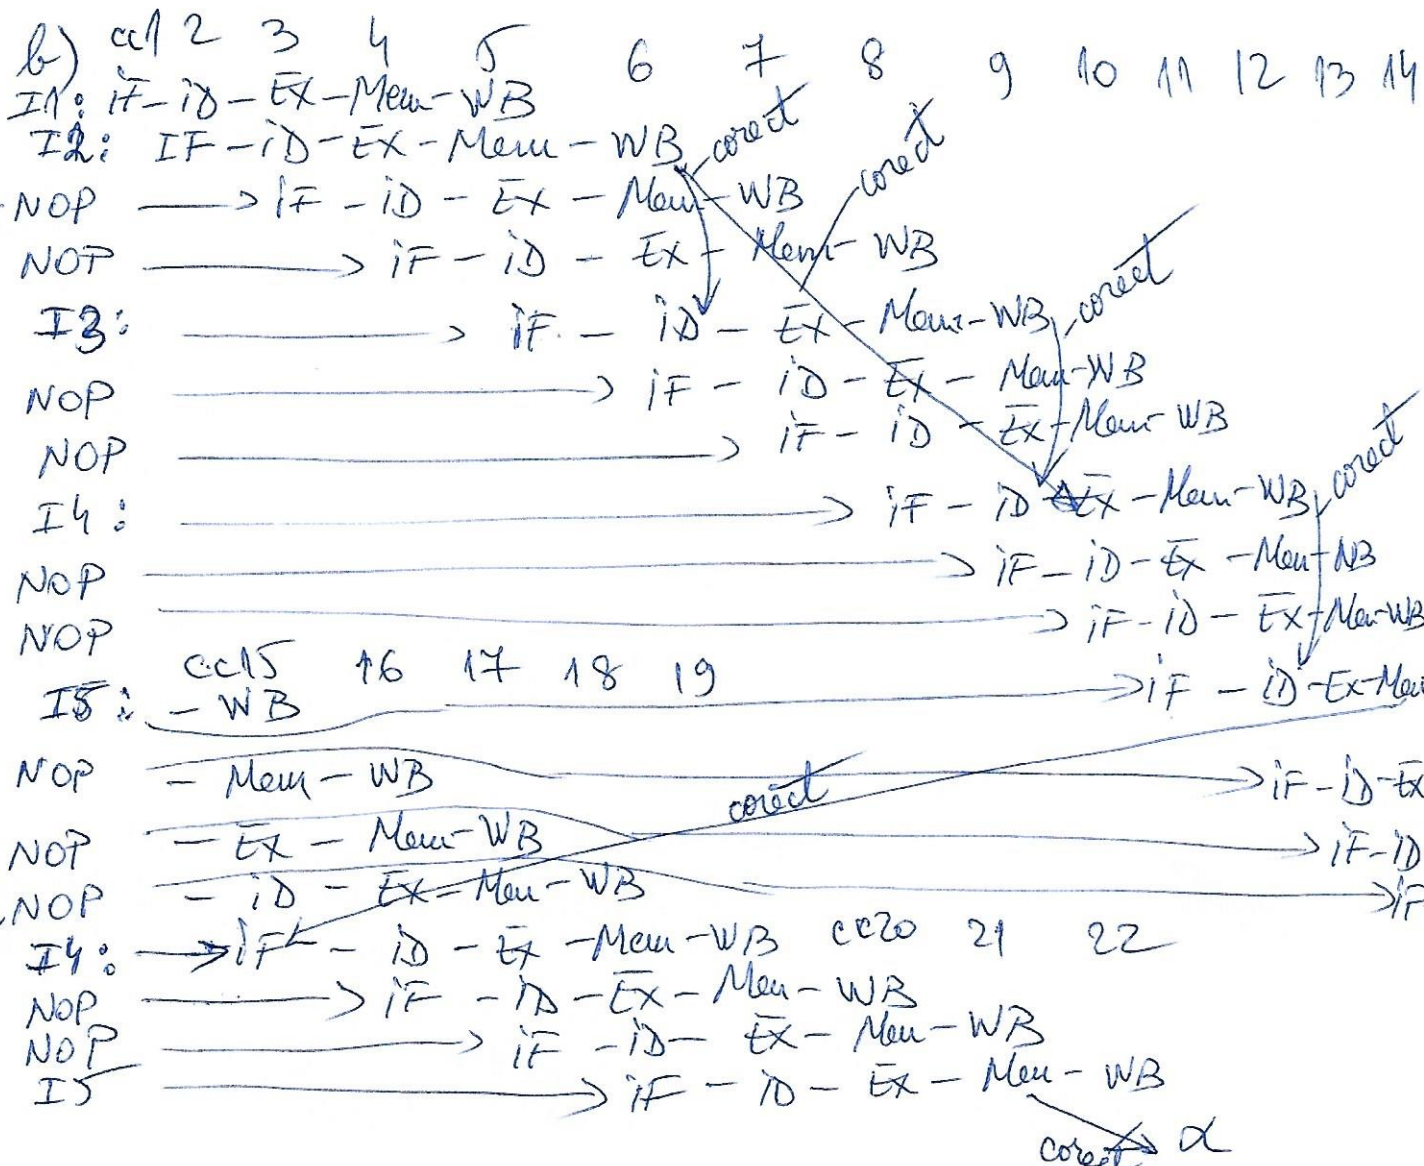 b) cc1 2 3 4 5 6 7 8 9 10 11 12 13 14
I1: iF - iD - EX - Mem - WB
I2: IF - iD - EX - Mem - WB corect
NOP → IF - iD - EX - Mem - WB corect
NOP → iF - iD - EX - Mem - WB
I3: → iF - iD - EX - Mem - WB corect
NOP → iF - iD - EX - Mem - WB
NOP → iF - iD - EX - Mem - WB
I4: → iF - iD - EX - Mem - WB corect
NOP → iF - iD - EX - Mem - WB
NOP → iF - iD - EX - Mem - WB
cc15 16 17 18 19
I5: - WB → iF - iD - EX - Mem
NOP - Mem - WB → iF - iD - EX
NOP - EX - Mem - WB corect → iF - iD
NOP - iD - EX - Mem - WB → iF
I4: → iF - iD - EX - Mem - WB cc20 21 22
NOP → iF - iD - EX - Mem - WB
NOP → iF - iD - EX - Mem - WB
I5 → iF - iD - EX - Mem - WB
corect α